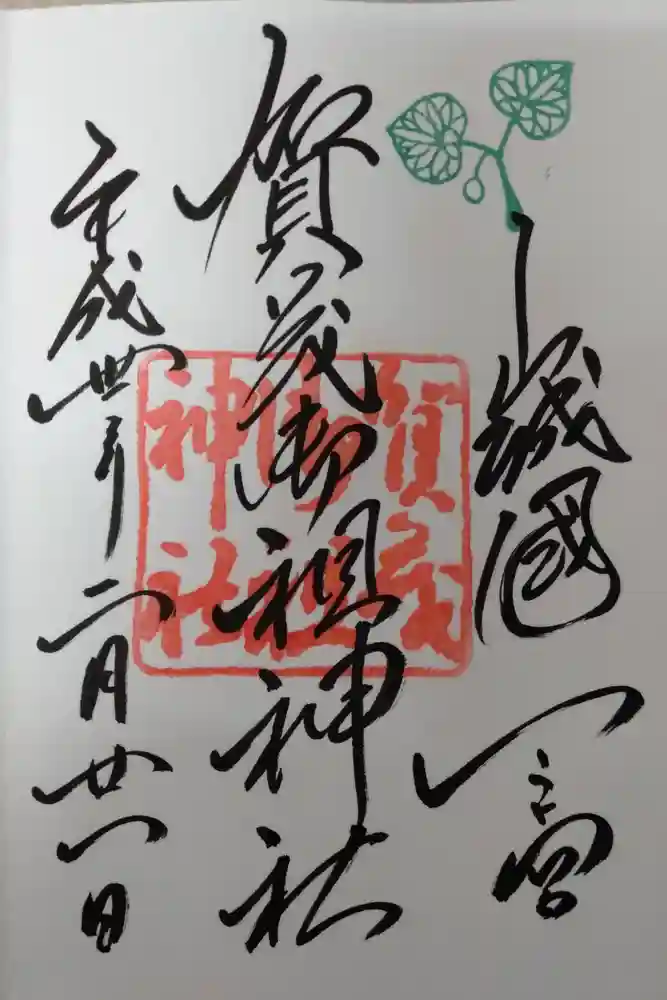 山城國一之宮
賀茂御祖神社
平成卅年二月廿一日
賀茂
御祖
神社